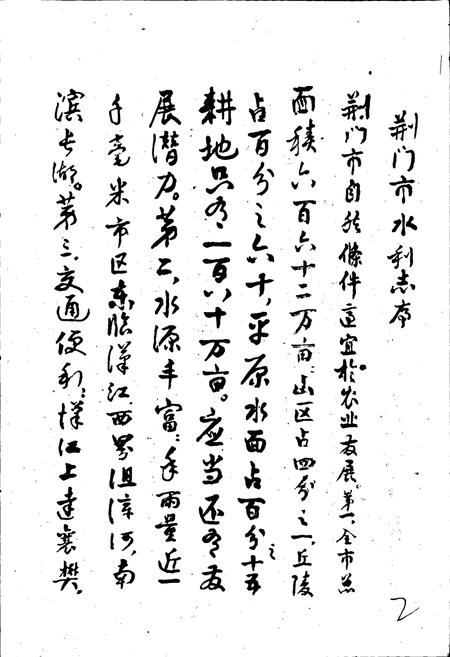 荆门市水利志序
荆门市自然條件適宜於农业发展。第一、全市总
面積六百六十二万亩：山区占四分之一、丘陵
占百分之六十，平原水面占百分之十五
耕地只有一百八十万亩。应当还有发
展潜力。第二、水源丰富：年雨量近一
千毫米市区东临漢江、西界沮漳河、南
滨长湖。第三、交通便利：漢江上達襄樊，
2